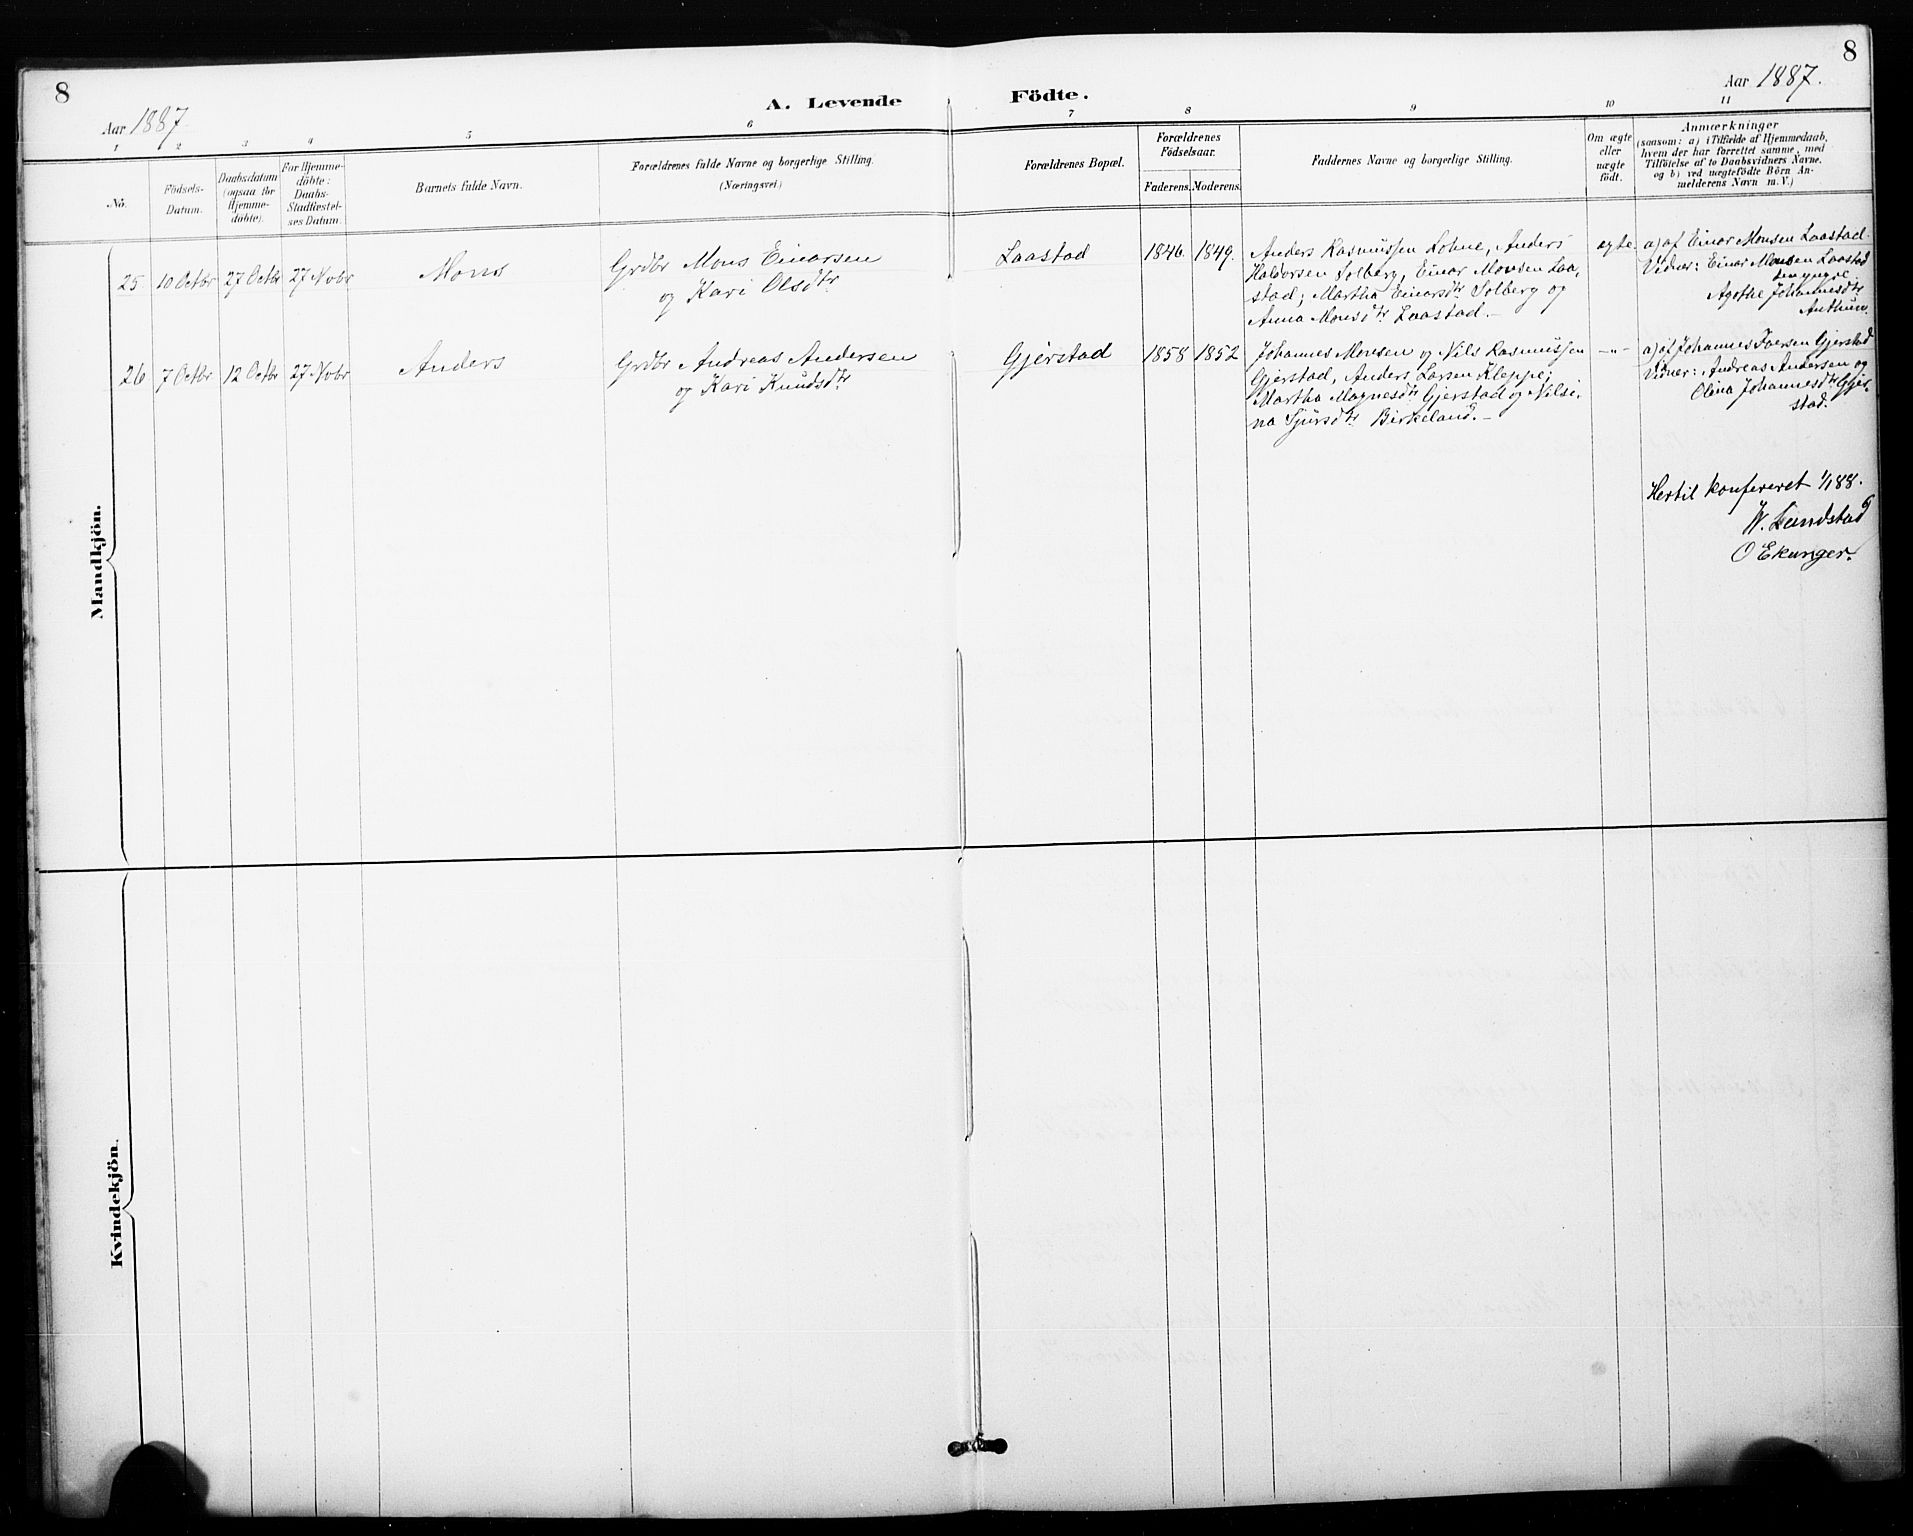 8
8
Aar 1887.
A. Levende Födte.
Aar 1887.
1 2 3 4 5 6 7 8 9 10 11
No.
Födsels-
Datum.
Daabsdatum
(ogsaa for
Hjemme-
döbte).
For Hjemme-
döbte:
Daabs-
Stadfæstel-
ses Datum.
Barnets fulde Navn.
Forældrenes fulde Navne og borgerlige Stilling.
(Næringsvei)
Forældrenes Bopæl.
Forældrenes
Födselsaar.
Faderens. Moderens.
Faddernes Navne og borgerlige Stilling.
Om ægte
eller
uægte
födt.
Anmærkninger
(saasom: a) i Tilfælde af Hjemmedaab,
hvem der har forrettet samme, med
Tilföielse af to Daabsvidners Navne,
og b) ved uægtefödte Börn An-
melderens Navn m. V.)
Mandkjön.
25 10 Octbr 27 Octbr 27 Novbr Mons
Grdbr Mons Einarsen
og Kari Olsdtr
Laastad 1846. 1849.
Anders Rasmussen Lohne, Anders
Haldorsen Solberg, Einar Monsen Laa-
stad; Martha Einarsdtr Solberg og
Anna Monsdtr Laastad. -
ægte
a) af Einar Monsen Laastad.
Vidner: Einar Monsen Laastad
den yngre.
Agathe Johannesdtr
Authun.
26 7 Octbr 12 Octbr 27 Novbr Anders
Grdbr Andreas Andersen
og Kari Knudsdtr
Gjerstad 1858 1852
Johannes Monsen og Nils Rasmussen
Gjerstad, Anders Larsen Kleppe;
Martha Magnesdtr Gjerstad og Nilsi-
na Sjursdtr Birkeland. -
-"-
a) af Johannes Iversen Gjerstad
Vidner: Andreas Andersen og
Olina Johannesdtr Gjer-
stad.
Hertil konfereret 1/1 88.
W. Landstad
O Ekanger.
Kvindekjön.